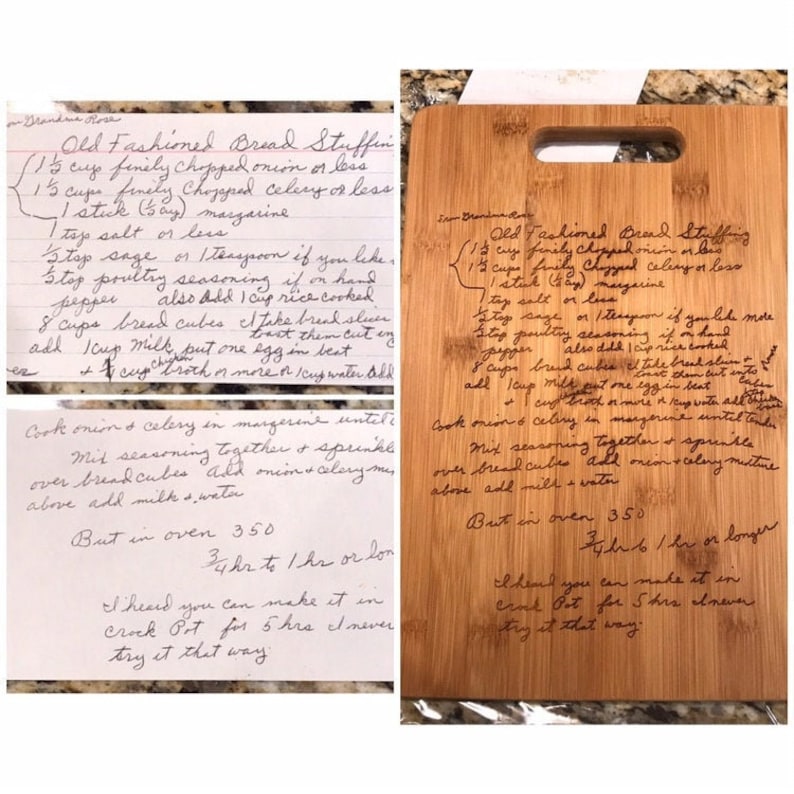 From Grandma Rose
Old Fashioned Bread Stuffin
1 ½ cup finely chopped onion or less
1 ½ cups finely Chopped celery or less
1 stick (½ cup) margarine
1 tsp salt or less
½ tsp sage or 1 teaspoon if you like
½ tsp poultry seasoning if on hand
pepper also add 1 cup rice cooked
8 cups bread cubes I take bread slices
toast them cut in
add 1 cup Milk put one egg in beat
chicken
+ cup broth or more or 1 cup water add
Cook onion + celery in margerine until
Mix seasoning together + sprinkle
over bread cubes Add onion + celery mi
above add milk + water
But in oven 350
¾ hr to 1 hr or lon
I heard you can make it in
Crock Pot for 5 hrs I never
try it that way
From Grandma Rose
Old Fashioned Bread Stuffing
1 ½ cup finely chopped onion or less
1 ½ cups finely Chopped celery or less
1 stick (½ cup) margarine
1 tsp salt or less
½ tsp sage or 1 teaspoon if you like more
½ tsp poultry seasoning if on hand
pepper also add 1 cup rice cooked
8 cups bread cubes I take bread slices +
toast them cut into
cubes
add 1 cup Milk put one egg in beat
+ cup broth or more or 1 cup water add
Cook onion + celery in margerine until tender
Mix seasoning together + sprinkle
over bread cubes Add onion + celery mixture
above add milk + water
But in oven 350
¾ hr to 1 hr or longer
I heard you can make it in
Crock Pot for 5 hrs I never
try it that way